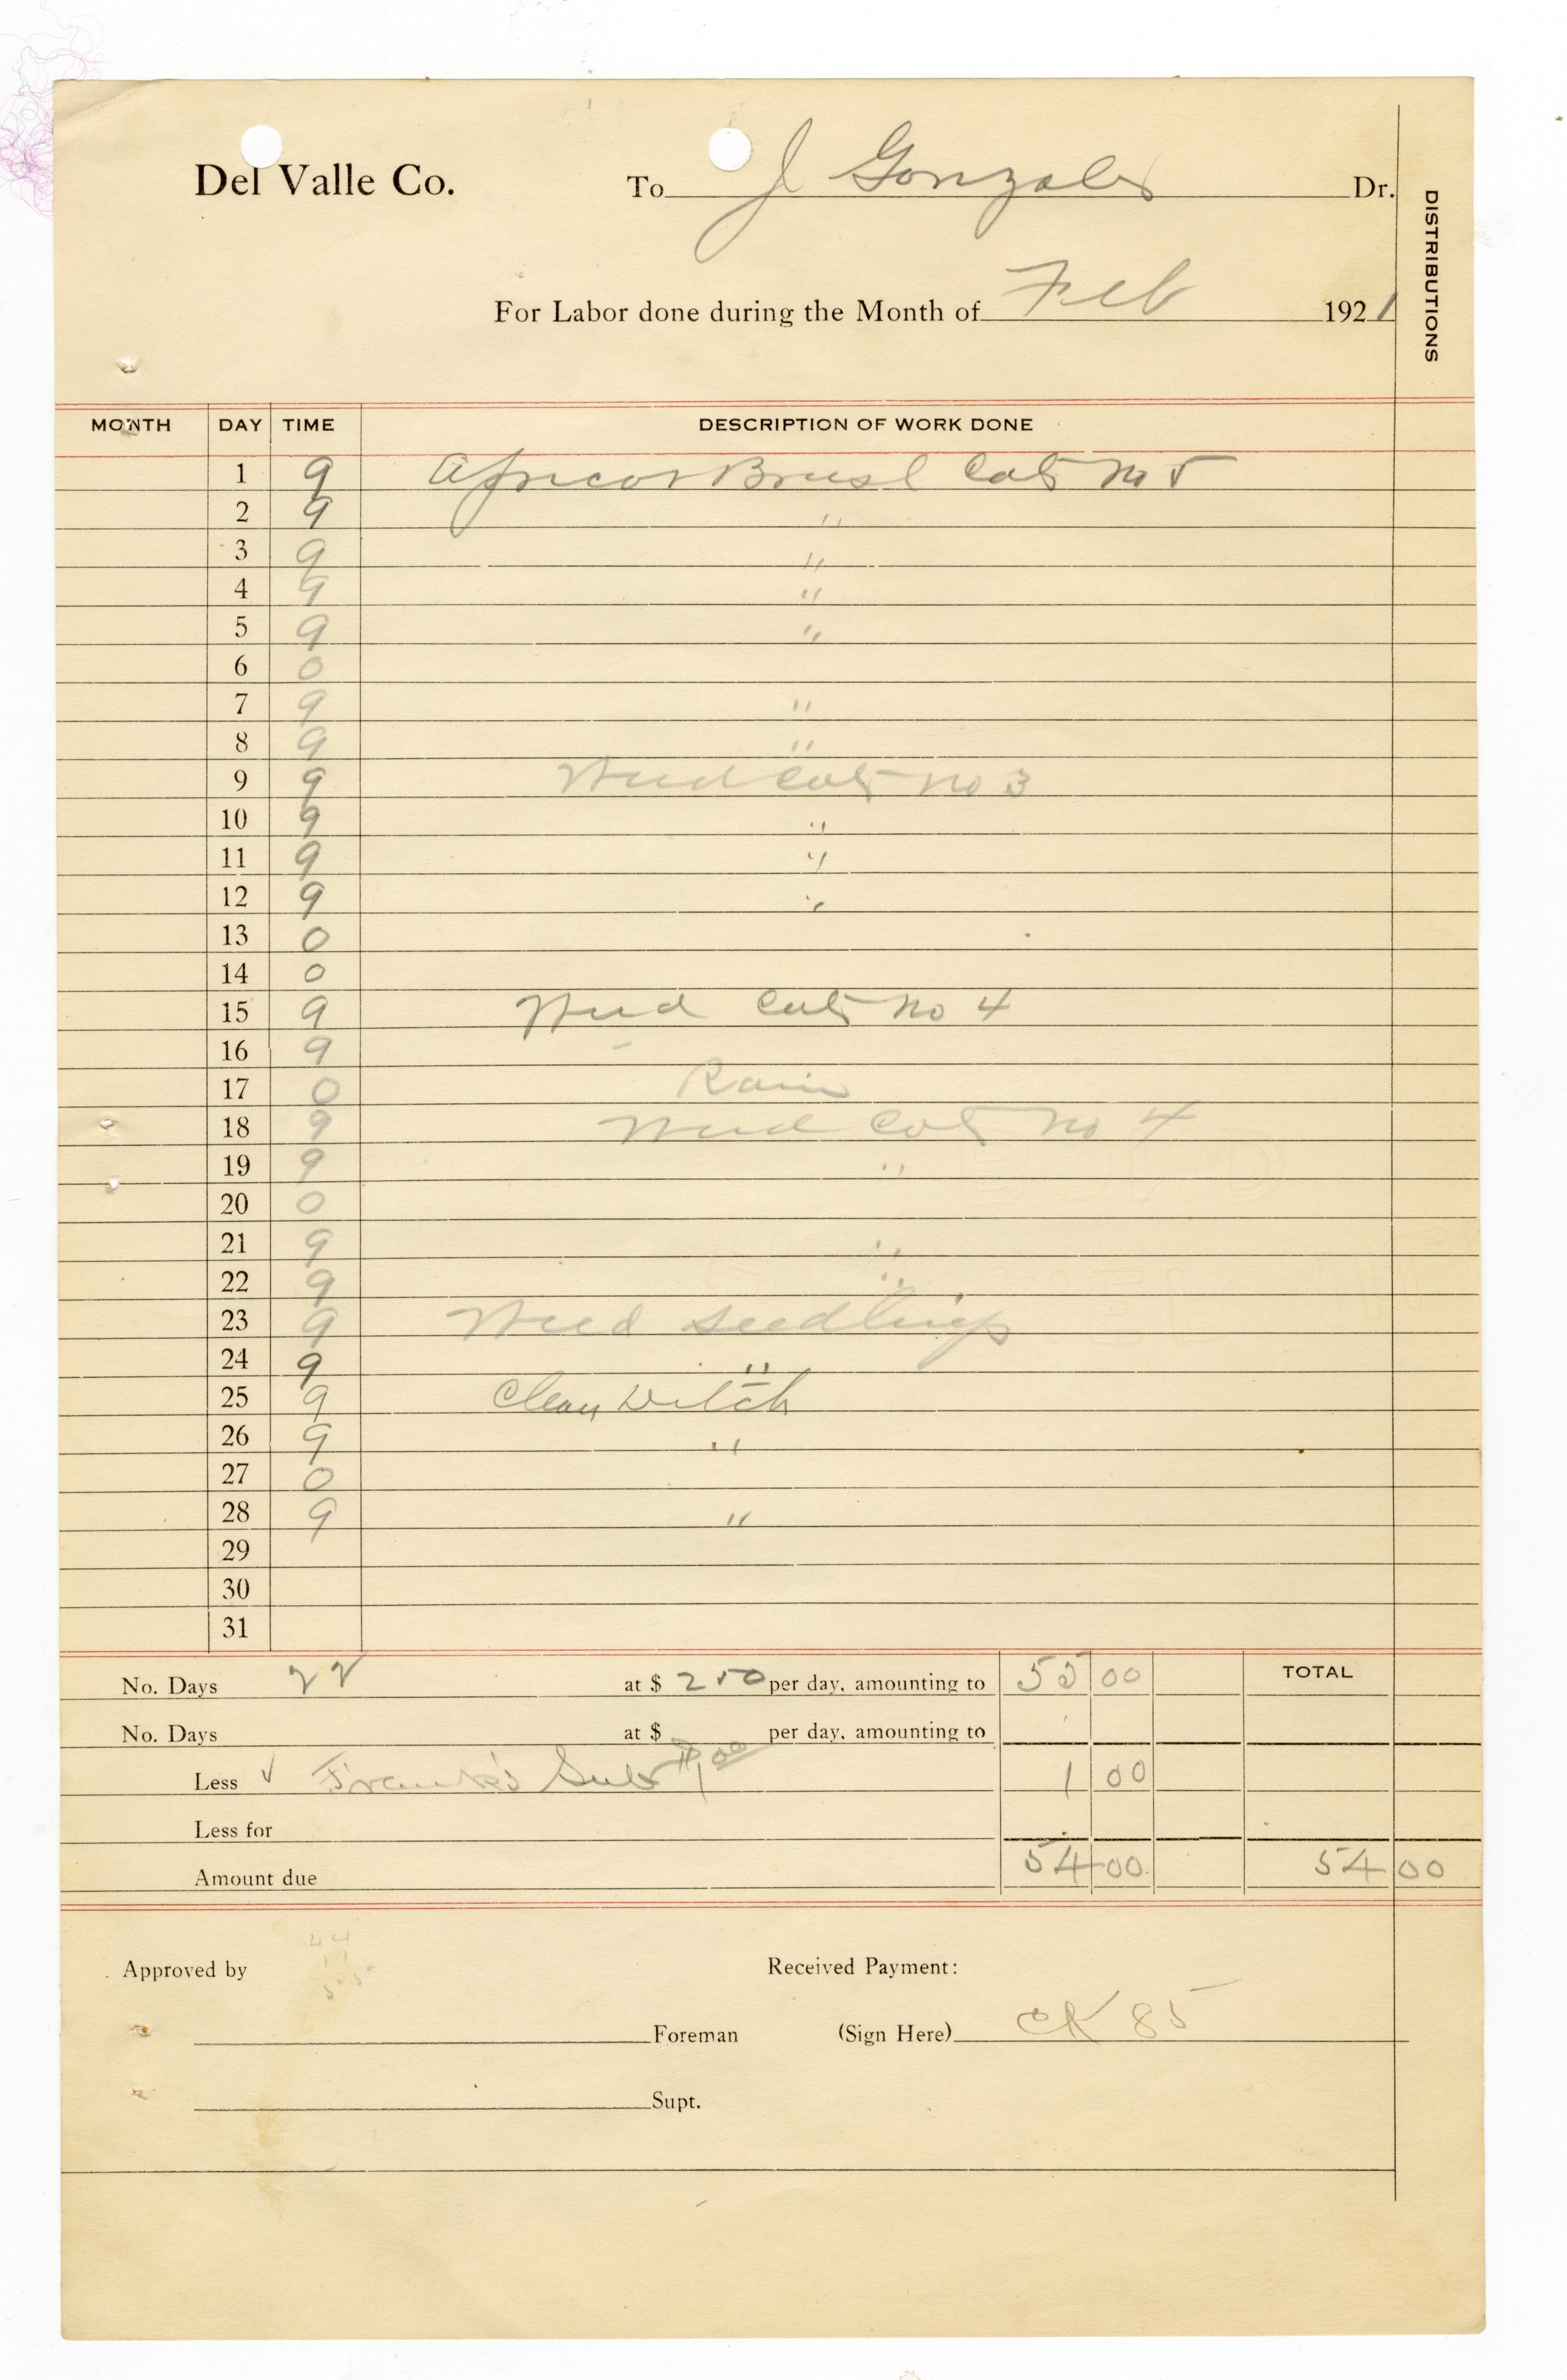 Del Valle Co. To J Gonzales Dr.
DISTRIBUTIONS
For Labor done during the Month of Feb 1921
MONTH DAY TIME DESCRIPTION OF WORK DONE
1 9 Apricot Brush Cal No 5
2 9 "
3 9 "
4 9 "
5 9 "
6 0
7 9 "
8 9 "
9 9 Weed Cal No 3
10 9 "
11 9 "
12 9 "
13 0
14 0
15 9 Weed Cal No 4
16 9
17 0 Rain
18 9 Weed Cal No 4
19 9 "
20 0
21 9 "
22 9 "
23 9 Weed seedlings
24 9 "
25 9 Clean Ditch
26 9 "
27 0
28 9 "
29
30
31
No. Days 22 at $ 2.50 per day, amounting to 55 00 TOTAL
No. Days at $ per day, amounting to
Less √ Frank's Sub $1 00 1 00
Less for
Amount due 54 00 54 00
44
11
55
Approved by Received Payment:
Foreman (Sign Here) CK 85
Supt.